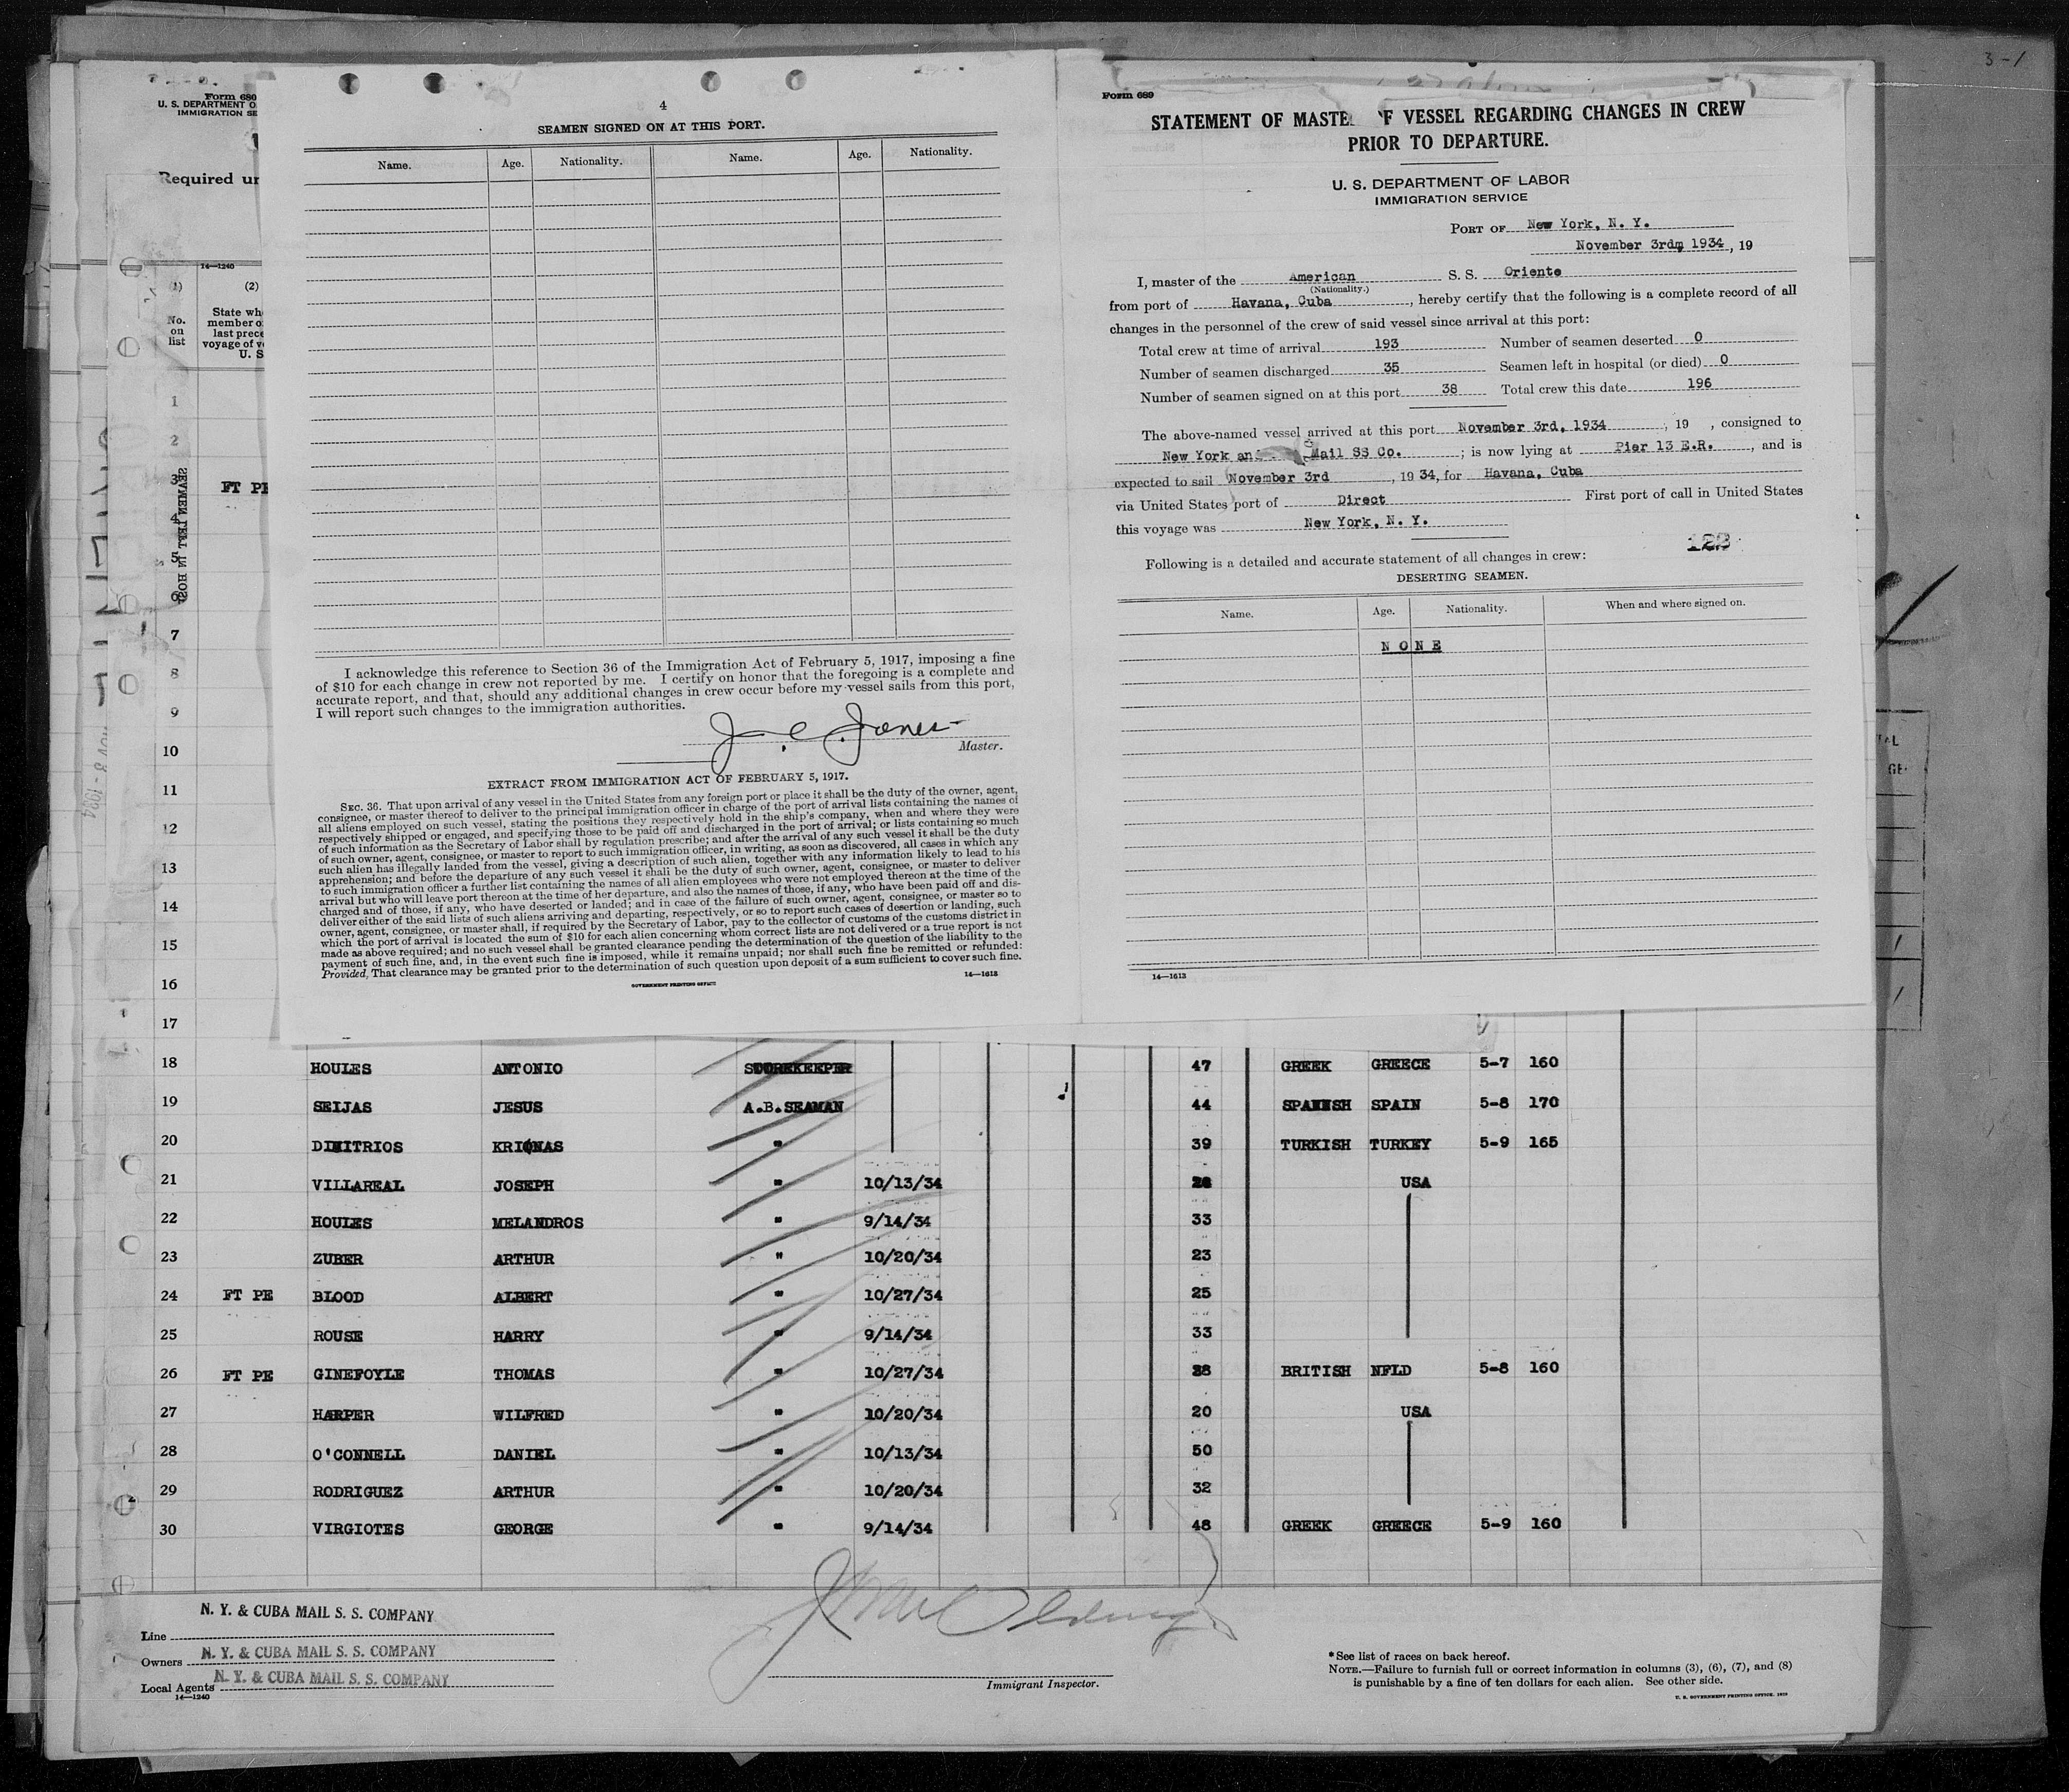 3-1
Form 680
U. S. DEPARTMENT O
IMMIGRATION SE
Required un
14—1240
(1) (2)
No. on list
State wh
member o
last prece
voyage of v
U. S
1
2
3 FT PE
4
5
6
7
8
9
10
11
12
13
14
15
16
17
4
SEAMEN SIGNED ON AT THIS PORT.
Name. Age. Nationality. Name. Age. Nationality.
I acknowledge this reference to Section 36 of the Immigration Act of February 5, 1917, imposing a fine
of $10 for each change in crew not reported by me. I certify on honor that the foregoing is a complete and
accurate report, and that, should any additional changes in crew occur before my vessel sails from this port,
I will report such changes to the immigration authorities.
J. C. Jones
Master.
EXTRACT FROM IMMIGRATION ACT OF FEBRUARY 5, 1917.
SEC. 36. That upon arrival of any vessel in the United States from any foreign port or place it shall be the duty of the owner, agent,
consignee, or master thereof to deliver to the principal immigration officer in charge of the port of arrival lists containing the names of
all aliens employed on such vessel, stating the positions they respectively hold in the ship's company, when and where they were
respectively shipped or engaged, and specifying those to be paid off and discharged in the port of arrival; or lists containing so much
of such information as the Secretary of Labor shall by regulation prescribe; and after the arrival of any such vessel it shall be the duty
of such owner, agent, consignee, or master to report to such immigration officer, in writing, as soon as discovered, all cases in which any
such alien has illegally landed from the vessel, giving a description of such alien, together with any information likely to lead to his
apprehension; and before the departure of any such vessel it shall be the duty of such owner, agent, consignee, or master to deliver
to such immigration officer a further list containing the names of all alien employees who were not employed thereon at the time of the
arrival but who will leave port thereon at the time of her departure, and also the names of those, if any, who have been paid off and dis-
charged and of those, if any, who have deserted or landed; and in case of the failure of such owner, agent, consignee, or master so to
deliver either of the said lists of such aliens arriving and departing, respectively, or so to report such cases of desertion or landing, such
owner, agent, consignee, or master shall, if required by the Secretary of Labor, pay to the collector of customs of the customs district in
which the port of arrival is located the sum of $10 for each alien concerning whom correct lists are not delivered or a true report is not
made as above required; and no such vessel shall be granted clearance pending the determination of the question of the liability to the
payment of such fine, and, in the event such fine is imposed, while it remains unpaid; nor shall such fine be remitted or refunded:
Provided, That clearance may be granted prior to the determination of such question upon deposit of a sum sufficient to cover such fine.
GOVERNMENT PRINTING OFFICE 14—1613
Form 689
STATEMENT OF MASTE F VESSEL REGARDING CHANGES IN CREW
PRIOR TO DEPARTURE.
U. S. DEPARTMENT OF LABOR
IMMIGRATION SERVICE
PORT OF New York, N. Y.
November 3rdm 1934, 19
I, master of the American S. S. Oriente
(Nationality.)
from port of Havana, Cuba, hereby certify that the following is a complete record of all
changes in the personnel of the crew of said vessel since arrival at this port:
Total crew at time of arrival 193 Number of seamen deserted 0
Number of seamen discharged 35 Seamen left in hospital (or died) 0
Number of seamen signed on at this port 38 Total crew this date 196
The above-named vessel arrived at this port November 3rd, 1934, 19 , consigned to
New York an Mail SS Co. ; is now lying at Pier 13 E.R. , and is
expected to sail November 3rd, 19 34, for Havana, Cuba
via United States port of Direct First port of call in United States
this voyage was New York, N. Y.
123
Following is a detailed and accurate statement of all changes in crew:
DESERTING SEAMEN.
Name. Age. Nationality. When and where signed on.
NONE
14—1613
18 HOULES ANTONIO STOREKEEPER 47 GREEK GREECE 5-7 160
19 SEIJAS JESUS A.B.SEAMAN 44 SPANISH SPAIN 5-8 170
20 DIMITRIOS KRIONAS " 39 TURKISH TURKEY 5-9 165
21 VILLAREAL JOSEPH " 10/13/34 USA
22 HOULES MELANDROS " 9/14/34 33
23 ZUBER ARTHUR " 10/20/34 23
24 FT PE BLOOD ALBERT " 10/27/34 25
25 ROUSE HARRY " 9/14/34 33
26 FT PE GINEFOYLE THOMAS " 10/27/34 BRITISH NFLD 5-8 160
27 HARPER WILFRED " 10/20/34 20 USA
28 O'CONNELL DANIEL " 10/13/34 50
29 RODRIGUEZ ARTHUR " 10/20/34 32
30 VIRGIOTES GEORGE " 9/14/34 48 GREEK GREECE 5-9 160
Line N. Y. & CUBA MAIL S. S. COMPANY
Owners N. Y. & CUBA MAIL S. S. COMPANY
Local Agents N. Y. & CUBA MAIL S. S. COMPANY
14—1240
Immigrant Inspector.
*See list of races on back hereof.
NOTE.—Failure to furnish full or correct information in columns (3), (6), (7), and (8)
is punishable by a fine of ten dollars for each alien. See other side.
U. S. GOVERNMENT PRINTING OFFICE